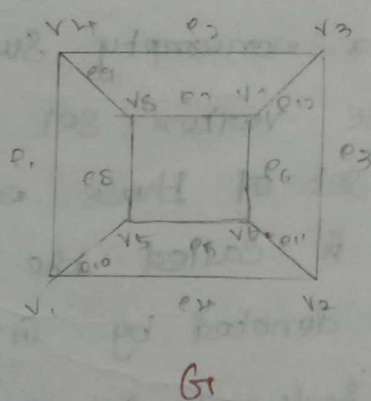 V4 e2 V3
e9
V8 e7 V7 e12
e1 e8 e6 e3
V5 e5 V6 e11
e10
V1 e4 V2
G1